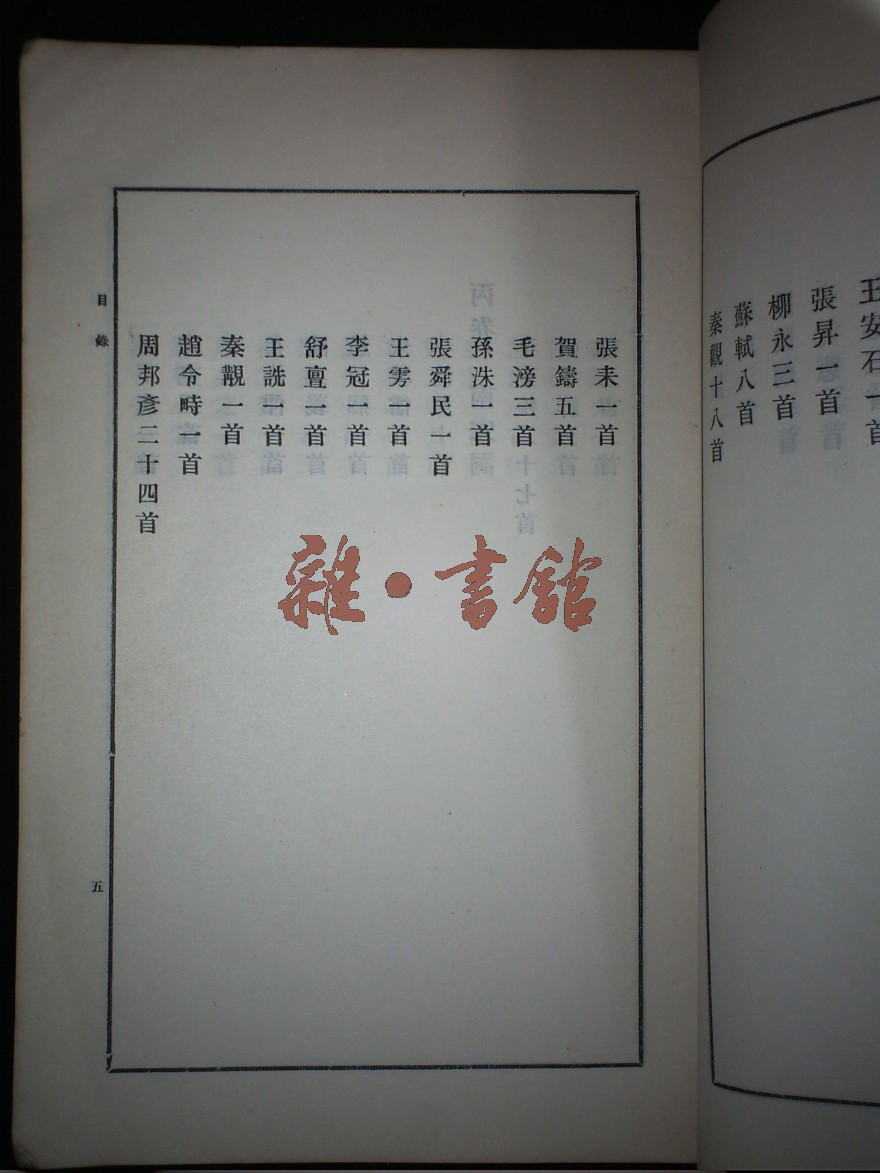 王安石一首
張昇一首
柳永三首
蘇軾八首
秦觀十八首
張耒一首
賀鑄五首
毛滂三首
孫洙一首
張舜民一首
王雱一首
李冠一首
舒亶一首
王詵一首
秦覯一首
趙令畤一首
周邦彥二十四首
目錄
五
雜·書館